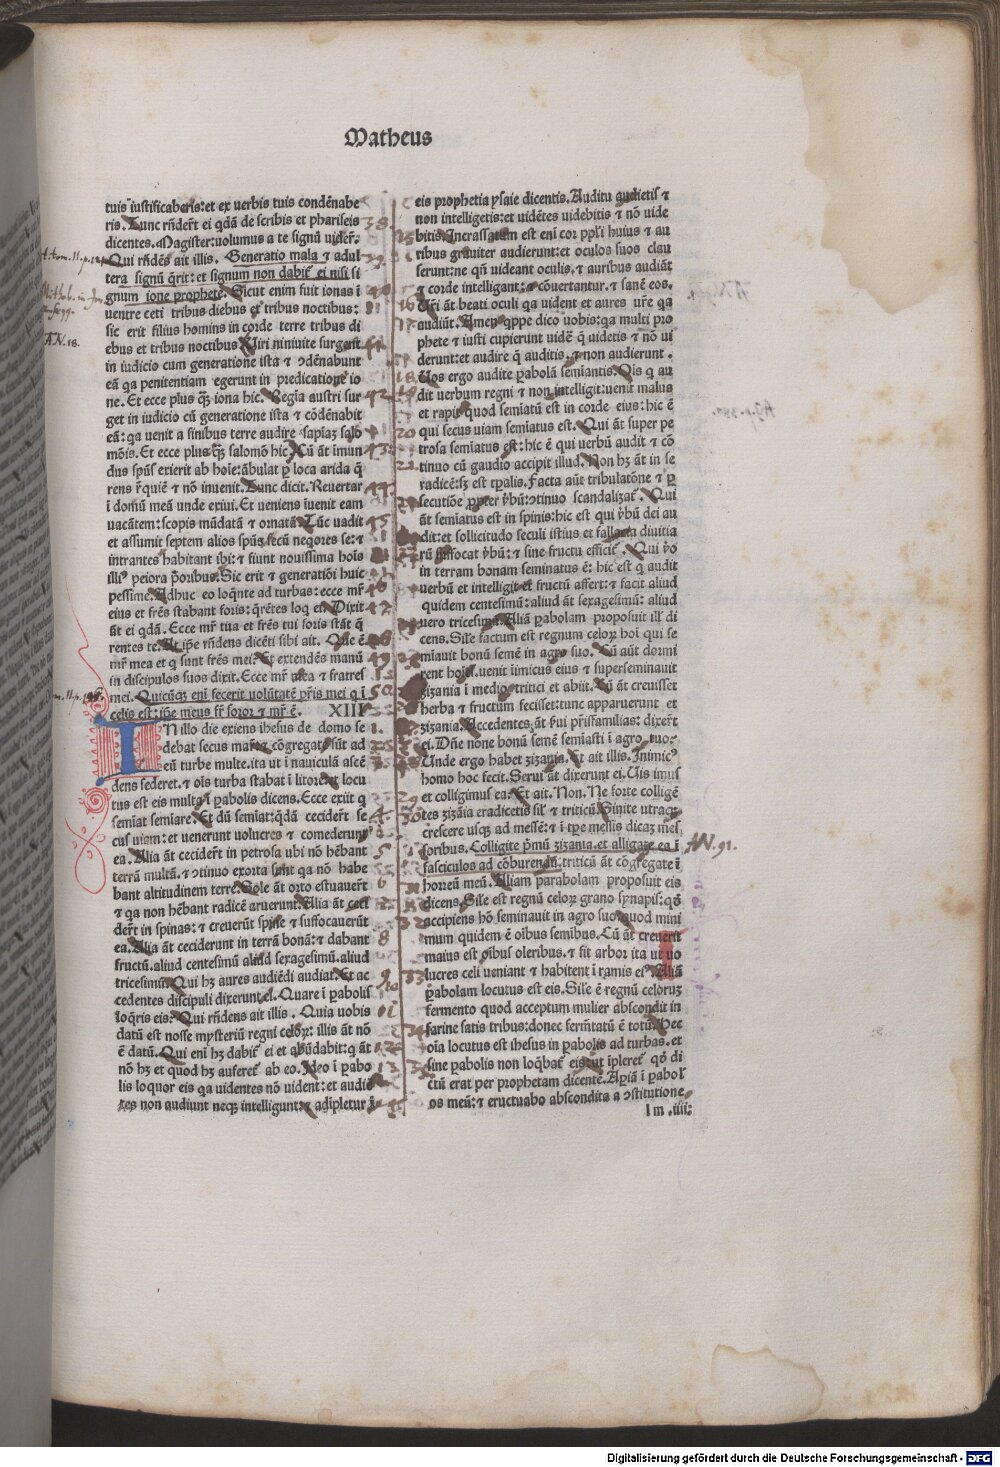 Matheus
tuis iustificaberis: et ex uerbis tuis condēnabe
ris. Tunc rn̄derūt ei qdā de scribis et phariseis
dicentes. Magister: uolumus a te signū uidere.
Qui rn̄dēs ait illis. Generatio mala ⁊ adul
tera signū q̄rit: et signum non dabit̄ ei nisi si
gnum ione prophete. Sicut enim fuit ionas ī
uentre ceti tribus diebus et tribus noctibus:
sic erit filius hominis in corde terre tribus di
ebus et tribus noctibus. Uiri niniuite surgent
in iudicio cum generatione ista ⁊ ↄdēnabunt
eā qa penitentiam egerunt in predicatione io
ne. Et ecce plus q̄ꝫ iona hic. Regīa austri sur
get in iudicio cū generatione ista ⁊ cōdēnabit
eā: qa uenit a finibus terre audire sapiaꝫ salo
mōis. Et ecce plus q̄ꝫ salomō hic. Cū āt imun
dus sp̄us exierit ab hoīe: ābulat p loca arida q̄
rens r̄quiē ⁊ nō inuenit. Tunc dicit. Reuertar
ī domū meā unde exiui. Et ueniens īuenit eam
uacātem: scopis mūdatā ⁊ ornatā. Tūc uadit
et assumit septem alios sp̄us secū neqores se: ⁊
intrantes habitant ibi: ⁊ fiunt nouissima hoīs
illiꝰ peiora p̄oribus. Sic erit ⁊ generatiōi huic
pessime. Adhuc eo loq̄nte ad turbas: ecce mr̄
eius et fr̄es stabant foris: q̄rētes loq ei. Dixit
āt ei qdā. Ecce mr̄ tua et fr̄es tui foris stāt q̄
rentes te. At ip̄e rn̄dens dicēti sibi ait. Que ē
mr̄ mea et q sunt fr̄es mei? Et extendēs manū
in discipulos suos dixit. Ecce mr̄ mea ⁊ fratres
mei. Quicūqꝫ enī fecerit uolūtatē pr̄is mei q i
celis est: ip̄e meus fr̄ soror ⁊ mr̄ ē. XIII
IN illo die exiens ihesus de domo se
debat secus mare ⁊ cōgregate sūt ad
eū turbe multe. ita ut ī nauiculā ascē
dens sederet. ⁊ oīs turba stabat ī litore: et locu
tus est eis multa ī pabolis dicens. Ecce exiit q
semīat semiare. Et dū semīat: qdā ceciderūt se
cus uiam: et uenerunt uolucres ⁊ comederunt
ea. Alia āt ceciderūt in petrosa ubi nō hēbant
terrā multā. ⁊ ↄtinuo exorta sunt qa nō habe
bant altitudinem terre. Sole āt orto estuauerūt
⁊ qa non hēbant radicē aruerunt. Alia āt ceci
derūt in spinas: ⁊ creuerūt spine ⁊ suffocauerūt
ea. Alia āt ceciderunt in terrā bonā: ⁊ dabant
fructū. aliud centesimū aliud sexagesimū. aliud
tricesimū. Qui hꝫ aures audiēdi audiat. Et ac
cedentes discipuli dixerunt ei. Quare ī pabolis
loq̄ris eis? Qui rn̄dens ait illis. Quia uobis
datū est nosse mysteriū regni celoꝝ: illis āt nō
ē datū. Qui enī hꝫ dabit̄ ei et abūdabit: q āt
nō hꝫ et quod hꝫ auferet̄ ab eo. Ideo ī pabo
lis loquor eis qa uidentes nō uident: et audiē
tes non audiunt neqꝫ intelligunt: ⁊ adīpletur ī
eis prophetia ysaie dicentis. Auditu audietis ⁊
non intelligetis: et uidētes uidebitis ⁊ nō uide
bitis. Incrassatum est enī cor ppl̄i huius ⁊ au
ribus grauiter audierunt: et oculos suos clau
serunt: ne qn̄ uideant oculis. ⁊ auribus audiāt
⁊ corde intelligant: ⁊ cōuertantur. ⁊ sanē eos.
Ur̄i āt beati oculi qa uident et aures ur̄e qa
audiūt. Amen qppe dico uobis: qa multi pro
phete ⁊ iusti cupierunt uidē q̄ uidetis ⁊ nō ui
derunt: et audire q̄ auditis: ⁊ non audierunt.
Uos ergo audite pabolā semiantis. Ois q au
dit uerbum regni ⁊ non intelligit: uenit malus
et rapit quod semīatū est in corde eius: hic ē
qui secus uiam semiatus est. Qui āt super pe
trosa semīatus est: hic ē qui uerbū audit ⁊ cō
tinuo cū gaudio accipit illud. Non hꝫ āt in se
radicē: sꝫ est tp̄alis. Facta aūt tribulatōne ⁊ p
secutiōe ppter ƀbū: ↄtinuo scandalizat̄. Qui
āt semīatus est in spinis: hic est qui ƀbū dei au
dit: et sollicitudo seculi istius et fallacia diuitia
rū suffocat ƀbū: ⁊ sine fructu efficit̄. Qui ƀo
in terram bonam seminatus ē: hic est q audit
uerbū et intelligit et fructū affert: ⁊ facit aliud
quidem centesimū: aliud āt sexagesimū: aliud
uero tricesimū. Aliā pabolam proposuit ill̄ di
cens. Sil̄e factum est regnum celoꝝ hoī qui se
miauit bonū semē in agro suo. Cū aūt dormi
rent hoīes. uenit īimicus eius ⁊ superseminauit
zizania ī medio tritici et abiit. Cū āt creuisset
herba ⁊ fructum fecisset: tunc apparuerunt et
zizania. Accedentes āt ƀui pr̄isfamilias: dixerūt
ei. Dn̄e none bonū semē semīasti ī agro tuo?
Unde ergo habet zizania. Et ait illis. Inimicꝰ
homo hoc fecit. Serui āt dixerunt ei. Uis imus
et colligimus ea. Et ait. Non. Ne forte colligē
tes zizāia eradicetis sil̄ ⁊ triticū. Sinite utraqꝫ
crescere usqꝫ ad messē: ⁊ ī tpe messis dicaꝫ mes
soribus. Colligite p̄mū zizania. et alligate ea ī
fasciculos ad cōburendū: triticū āt cōgregate ī
horreū meū. Aliam parabolam proposuit eis
dicens. Sil̄e est regnū celoꝝ grano synapis: qd̄
accipiens hō seminauit in agro suo. quod mini
mum quidem ē oībus semībus. Cū āt creuerit
maius est oībus oleribus. ⁊ fit arbor ita ut uo
lucres celi ueniant ⁊ habitent ī ramis eiꝰ. Aliā
pabolam locutus est eis. Sil̄e ē regnū celoruꝫ
fermento quod acceptum mulier abscondit in
farine satis tribus: donec ferm̄tatū ē totū. Hec
oīa locutus est ihesus in pabolis ad turbas. et
sine pabolis non loq̄bat̄ eis: ut īpleret̄ qd̄ di
ctū erat per prophetam dicentē. Apiā ī pabol
os meū: ⁊ eructuabo abscondita a ↄstitutione
I m .iiii:
AN. 18.
AN. 91.
Digitalisierung gefördert durch die Deutsche Forschungsgemeinschaft - DFG